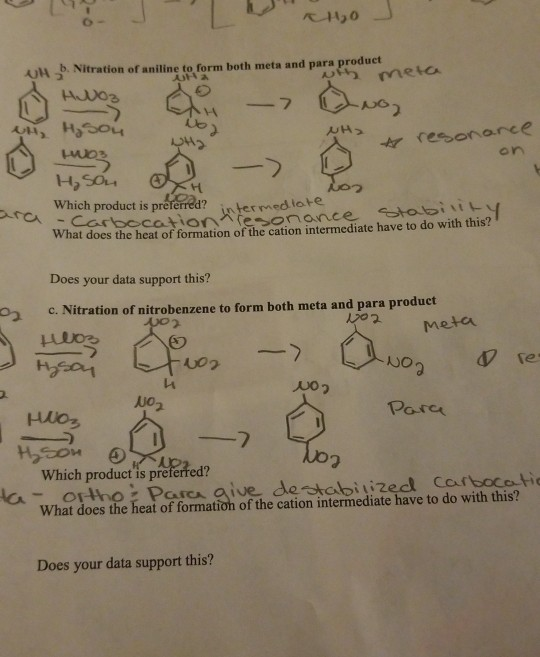 O-
H2O
b. Nitration of aniline to form both meta and para product
NH2 NH2 NH2 meta
HNO3 + H NO2 NO2
H2SO4
NH2 NH2 NH2 resonance
HNO3 on
H2SO4 + H NO2 NO2
Which product is preferred? intermediate
ara - Carbocation ^ resonance stability
What does the heat of formation of the cation intermediate have to do with this?
Does your data support this?
c. Nitration of nitrobenzene to form both meta and para product
O2 NO2 NO2 meta
HNO3 + NO2 NO2
H2SO4 H
NO2 NO2 Para
HNO3
H2SO4 + H NO2 NO2
Which product is preferred?
ta - ortho & Para give destabilized carbocatio
What does the heat of formation of the cation intermediate have to do with this?
Does your data support this?